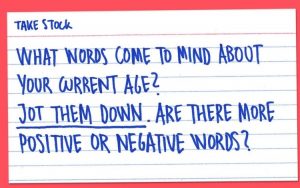 TAKE STOCK
WHAT WORDS COME TO MIND ABOUT
YOUR CURRENT AGE?
JOT THEM DOWN. ARE THERE MORE
POSITIVE OR NEGATIVE WORDS?